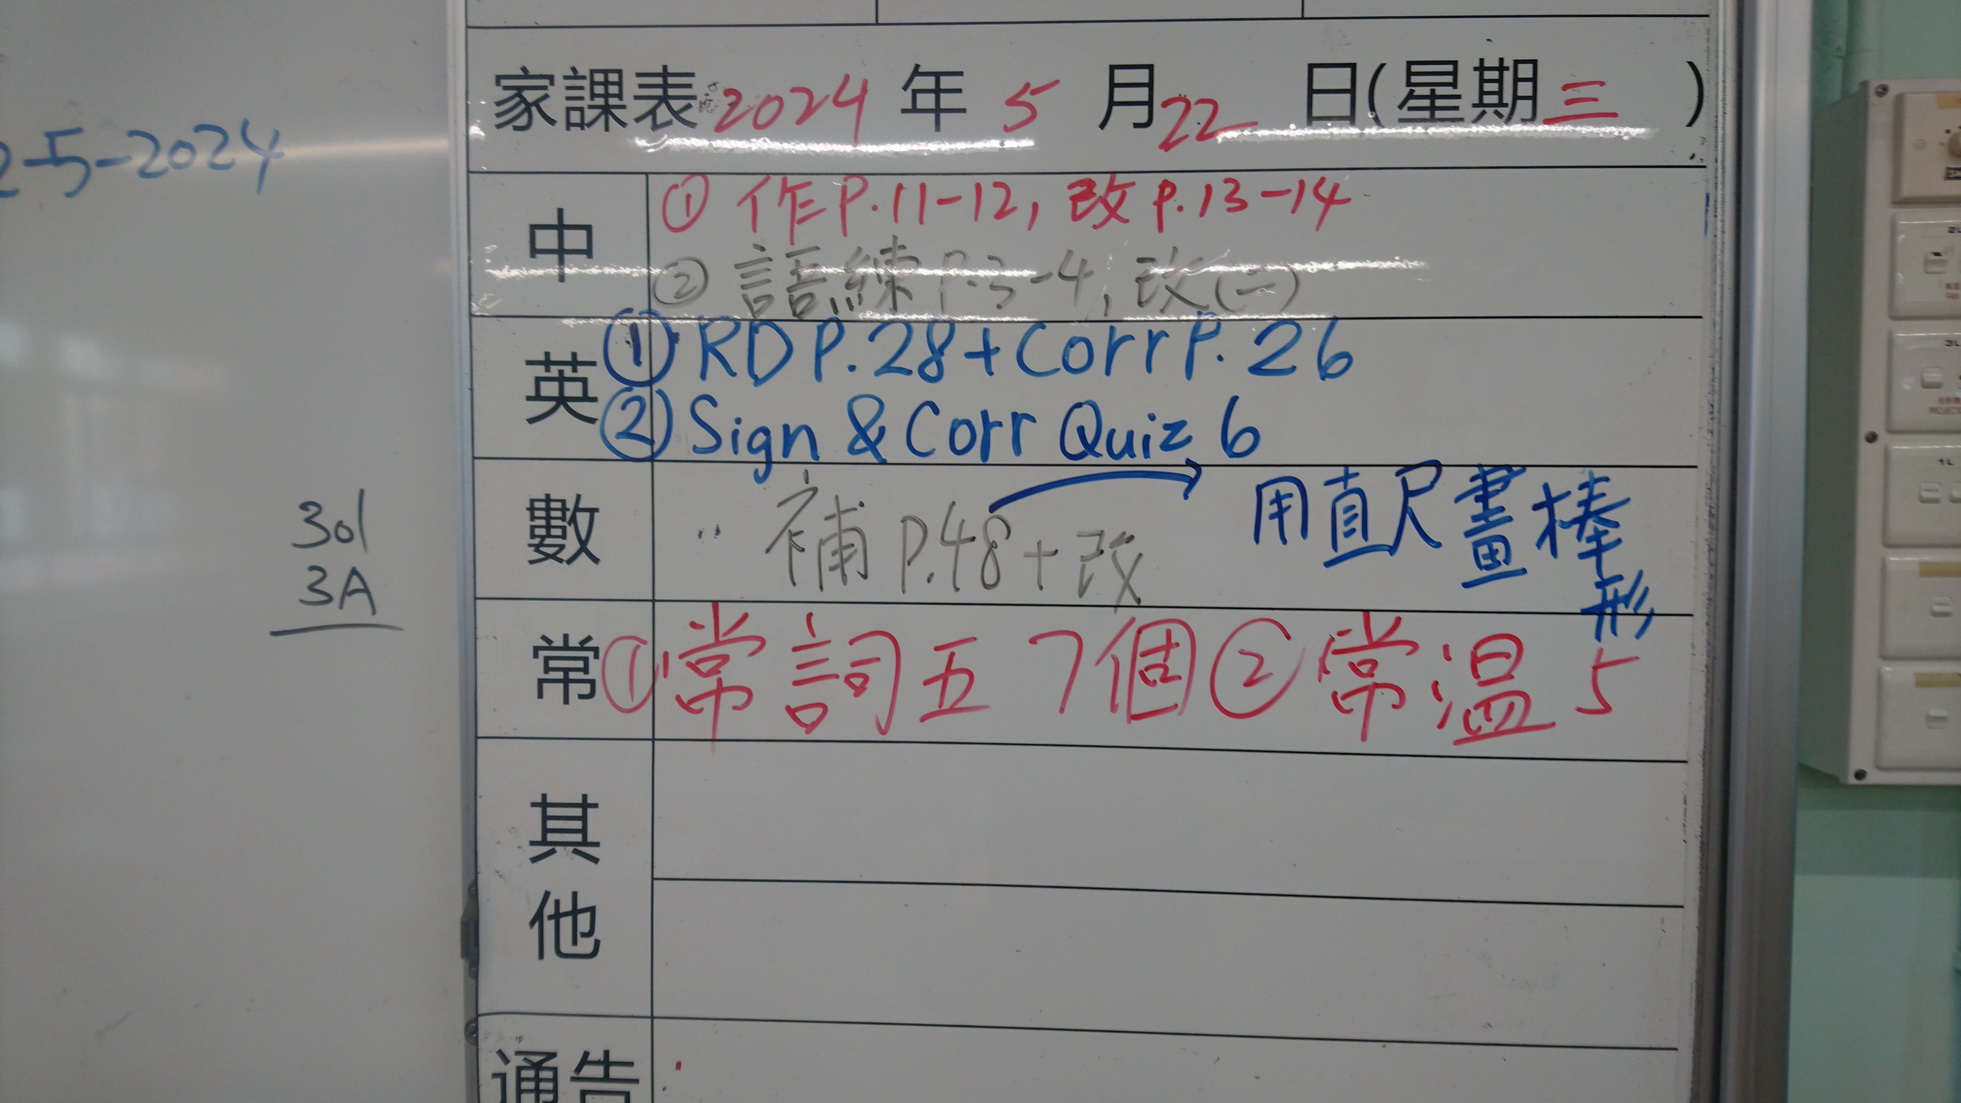 2-5-2024
301
3A
家課表 2024 年 5 月 22 日(星期三)
中
① 作P.11-12, 改P.13-14
② 語練P.3-4, 改(二)
英
① RD P.28 + Corr P. 26
② Sign & Corr Quiz 6
數
補 P.48 + 改
用直尺畫棒
形
常
① 常詞五 7個 ② 常溫 5
其
他
通告